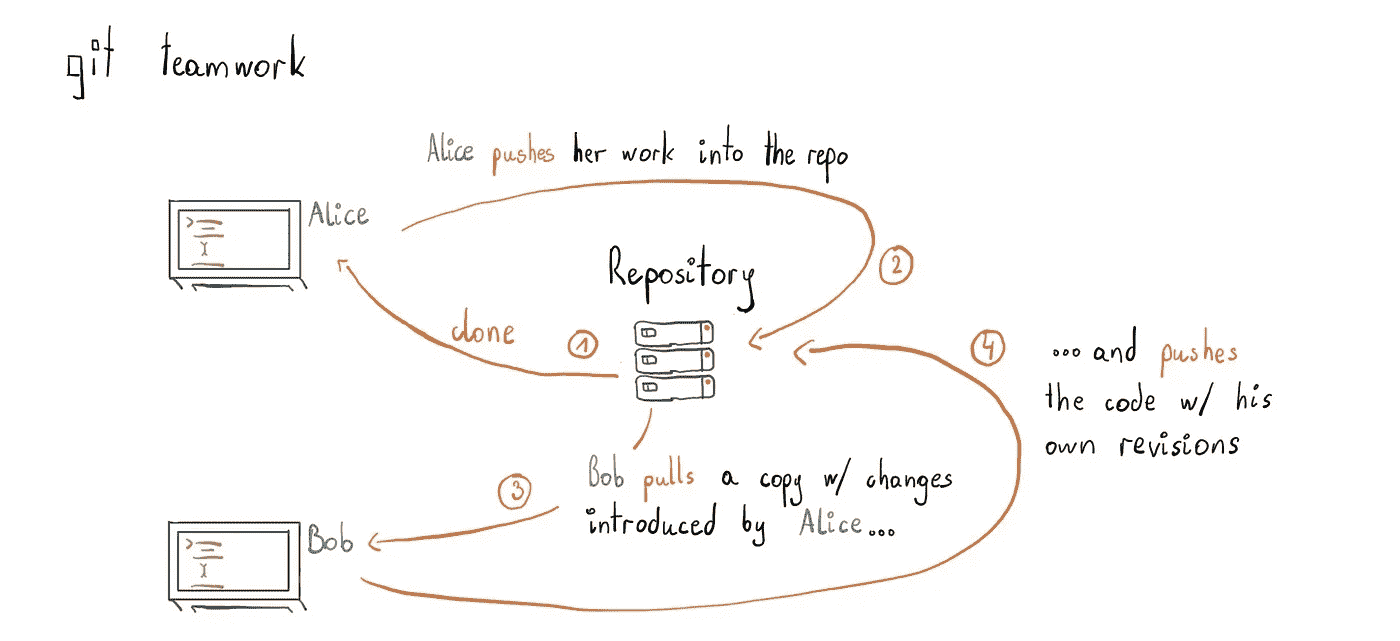 git teamwork
Alice pushes her work into the repo
Alice
Repository
2
clone
1
4
... and pushes
the code w/ his
own revisions
3
Bob pulls a copy w/ changes
introduced by Alice...
Bob